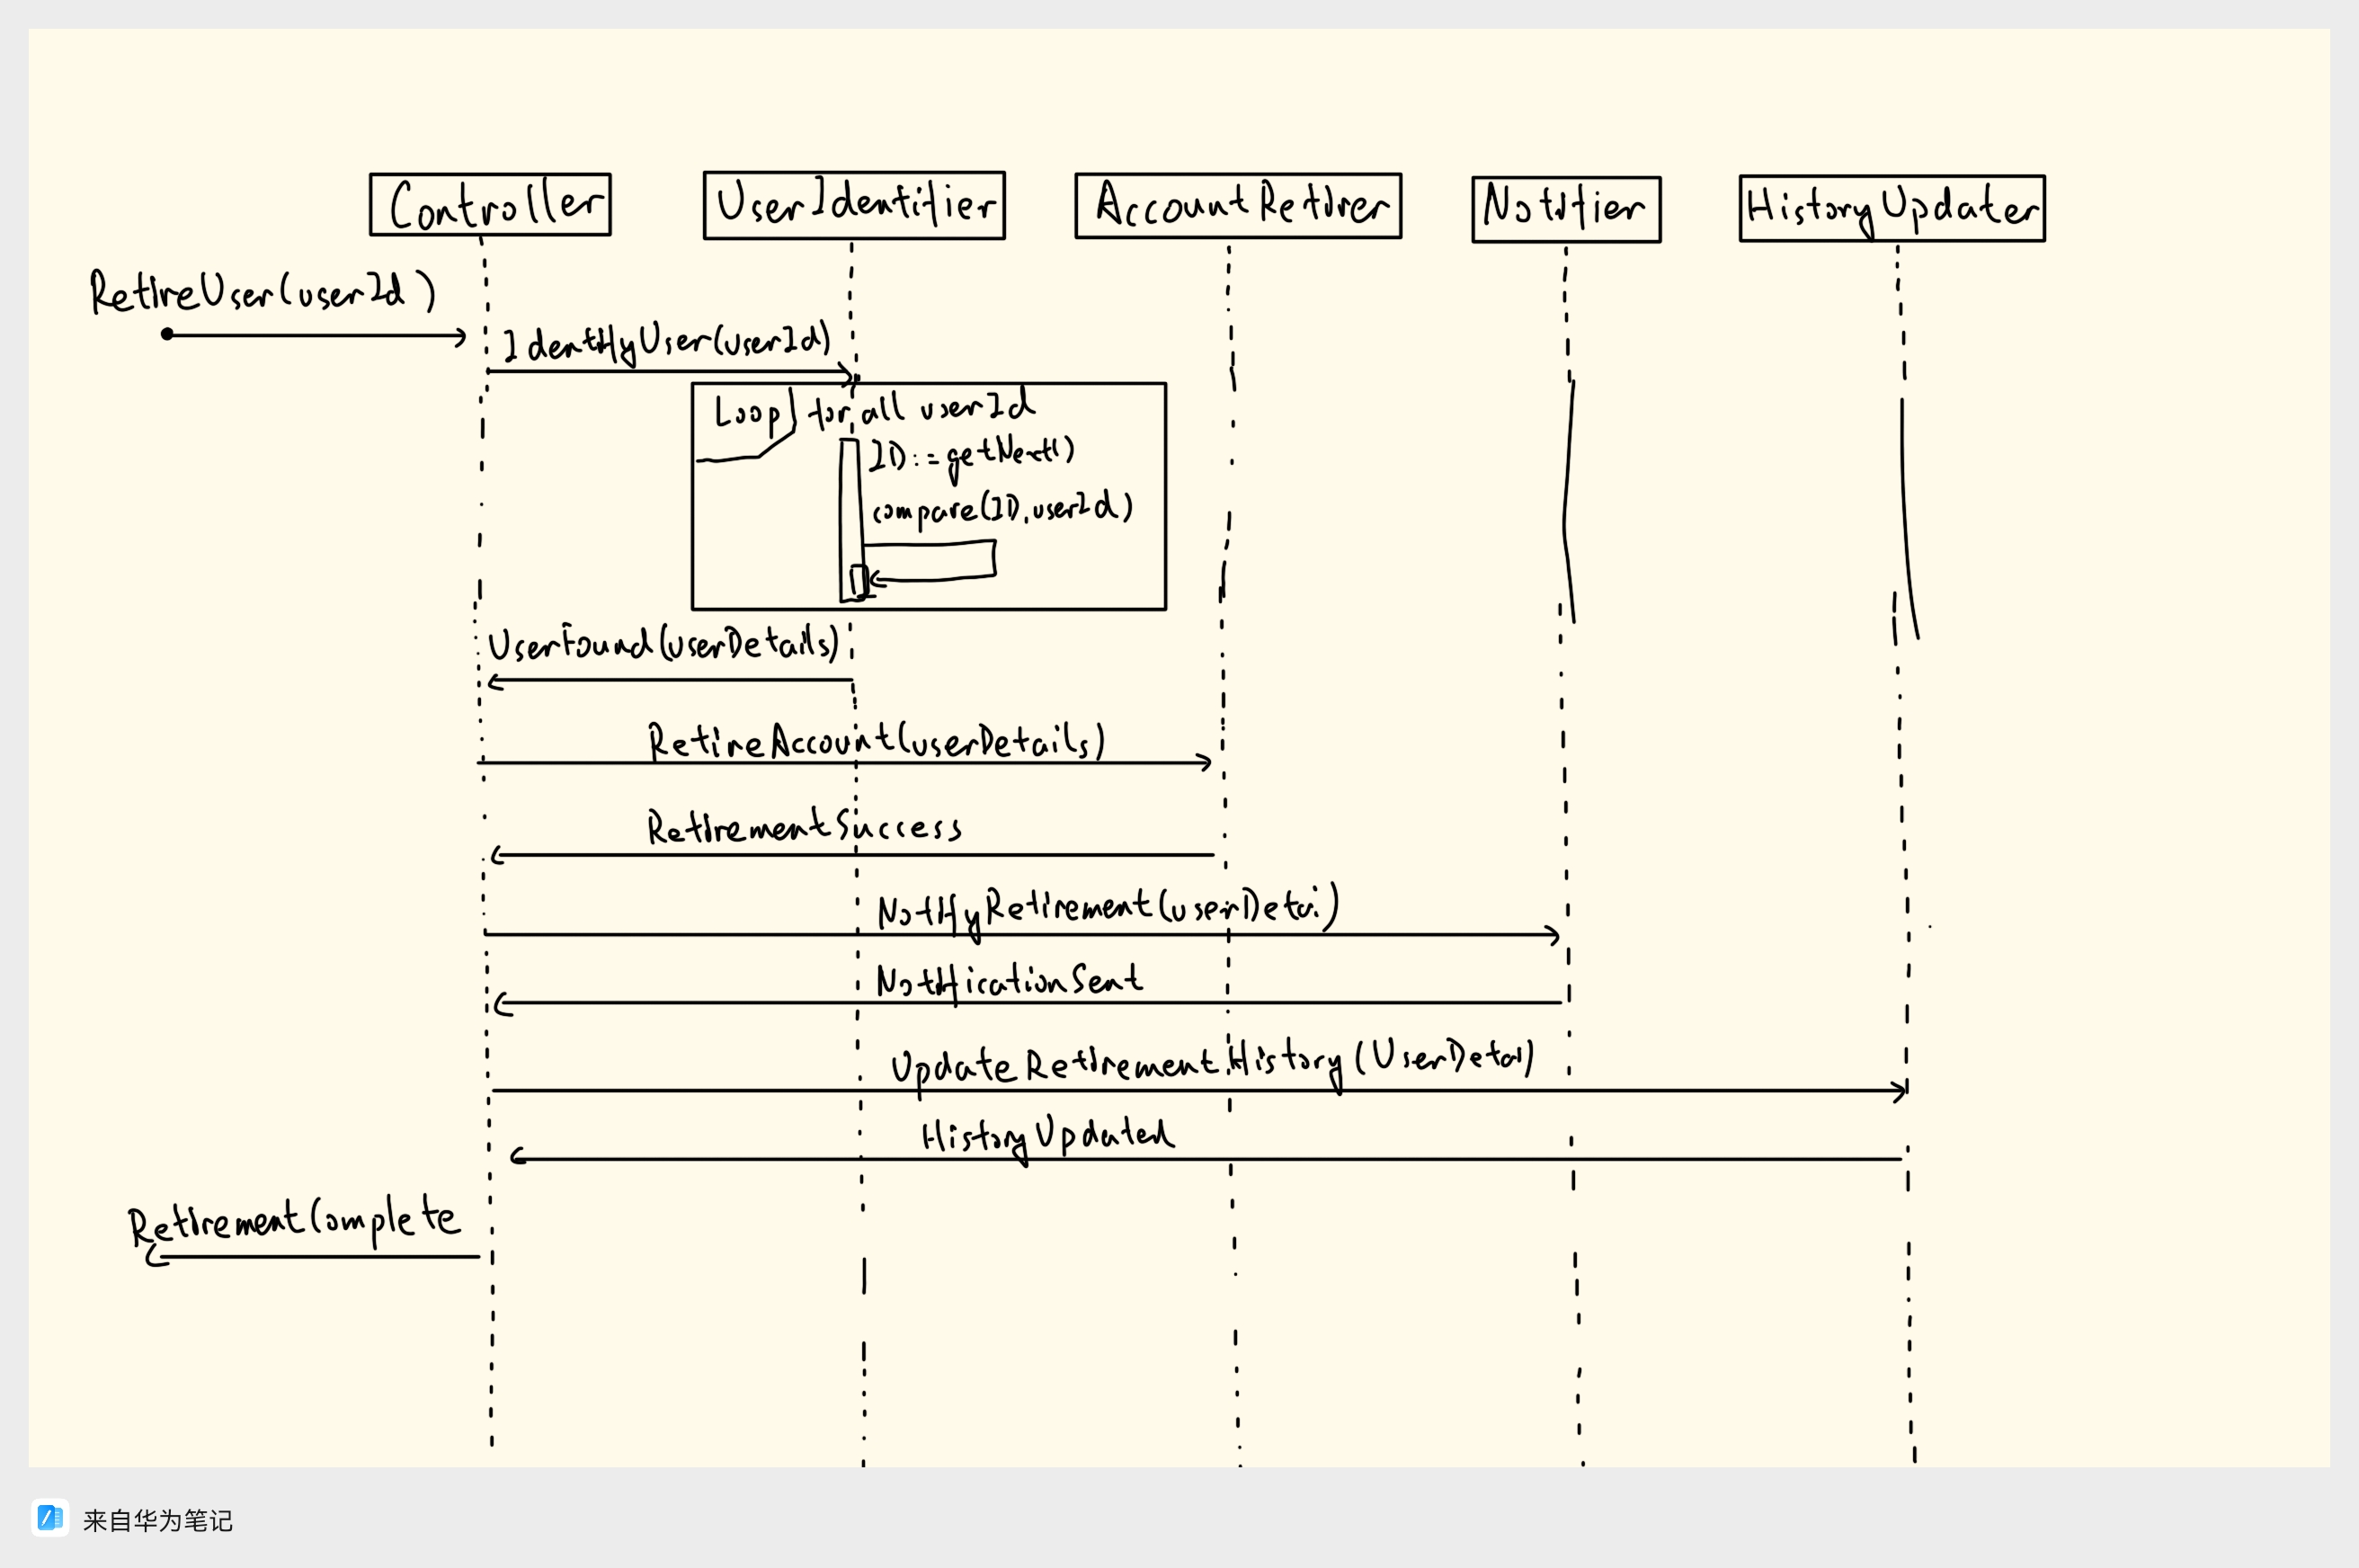 Controller
UserIdentifier
AccountRetirer
Notifier
HistoryUpdater
RetireUser(userId)
IdentifyUser(userId)
Loop for all userId
ID:=getNext()
compare(ID,userId)
UserFound(userDetails)
RetireAccount(userDetails)
RetirementSuccess
NotifyRetirement(userDetai)
NotificationSent
UpdateRetirementHistory(UserDetai)
HistoryUpdated
RetirementComplete
来自华为笔记